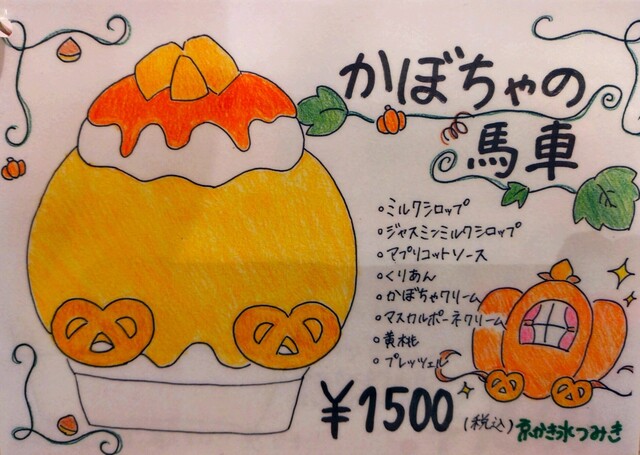 かぼちゃの
馬車
・ミルクシロップ
・ジャスミンミルクシロップ
・アプリコットソース
・くりあん
・かぼちゃクリーム
・マスカルポーネクリーム
・黄桃
・プレッツェル
¥1500(税込)
京かき氷つみき